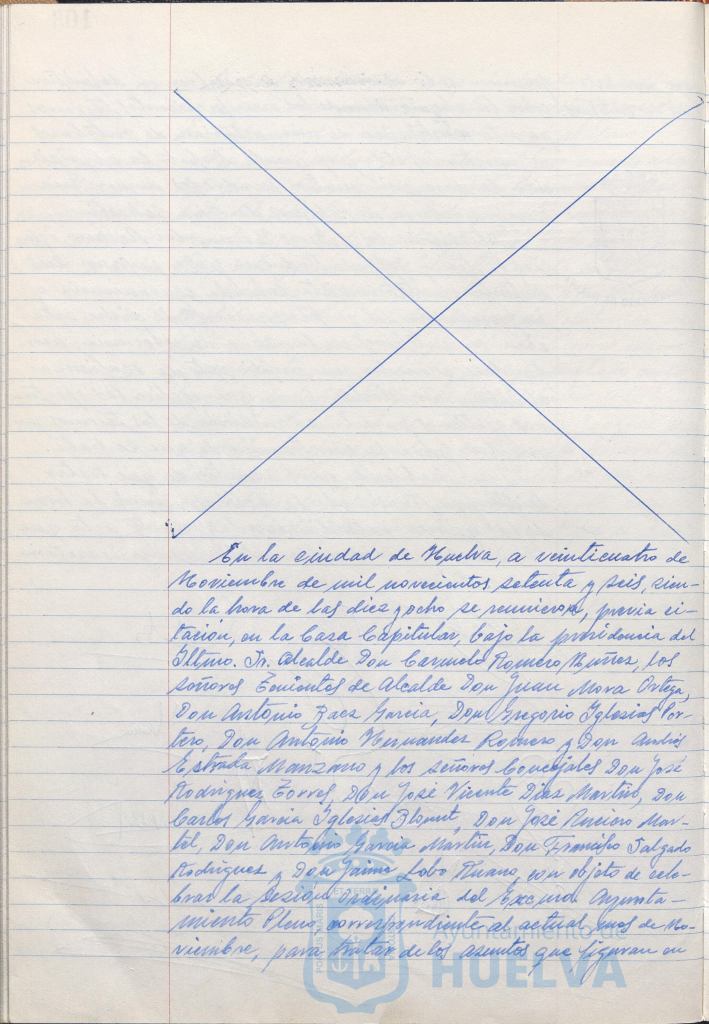 En la ciudad de Huelva, a veinticuatro de
Noviembre de mil novecientos setenta y seis, sien-
do la hora de las diez y ocho se reunieron, previa ci-
tación, en la Casa Capitular, bajo la presidencia del
Iltmo. Sr. Alcalde Don Carmelo Romero Núñez, los
señores Tenientes de Alcalde Don Juan Mora Ortega,
Don Antonio Baez Garcia, Don Gregorio Iglesias Por-
tero, Don Antonio Hernandez Romero y Don Andrés
Estrada Manzano y los señores Concejales Don José
Rodriguez Torres, Don José Vicente Diez Martin, Don
Carlos Garcia Iglesias, Don José Mar-
tel, Don Antonio Garcia Martin, Don Francisco Salgado
Rodriguez y Don Jaime Lobo, con objeto de cele-
brar la sesión ordinaria del Excmo. Ayunta-
miento Pleno correspondiente al actual mes de No-
viembre, para tratar de los asuntos que figuran en
Ayuntamiento de
HUELVA